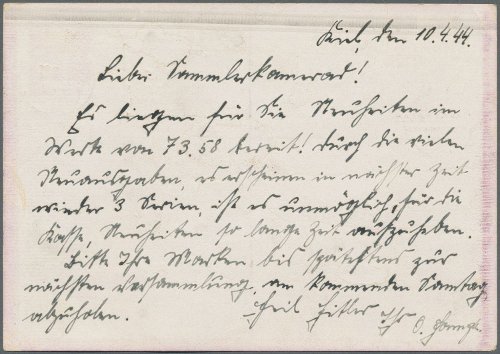 Kiel, den 10.4.44.
Lieber Sammlerkamerad!
Es liegen für Sie Neuheiten im
Werte von 73.58 bereit! Durch die vielen
Neuausgaben, es erscheinen in nächster Zeit
wieder 3 Serien, ist es unmöglich, für die
Kasse, Neuheiten so lange Zeit aufzuheben.
Bitte Ihre Marken bis spätestens zur
nächsten Versammlung, am kommenden Samstag
abzuholen. Heil Hitler
Ihr O.